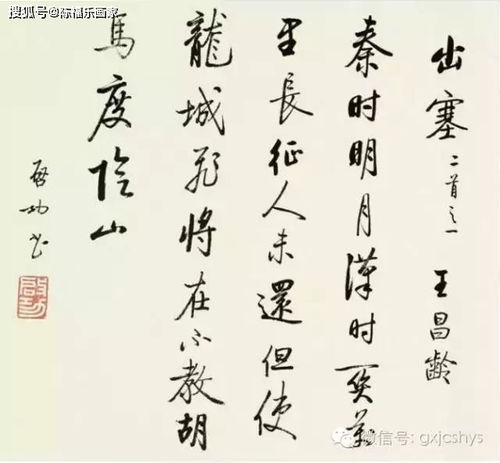 搜狐号@陈福乐画家
出塞 二首之一 王昌龄
秦时明月汉时关万
里長征人未還但使
龍城飛將在不教胡
馬度陰山
啓功书
啟功
微信号: gxjcshys